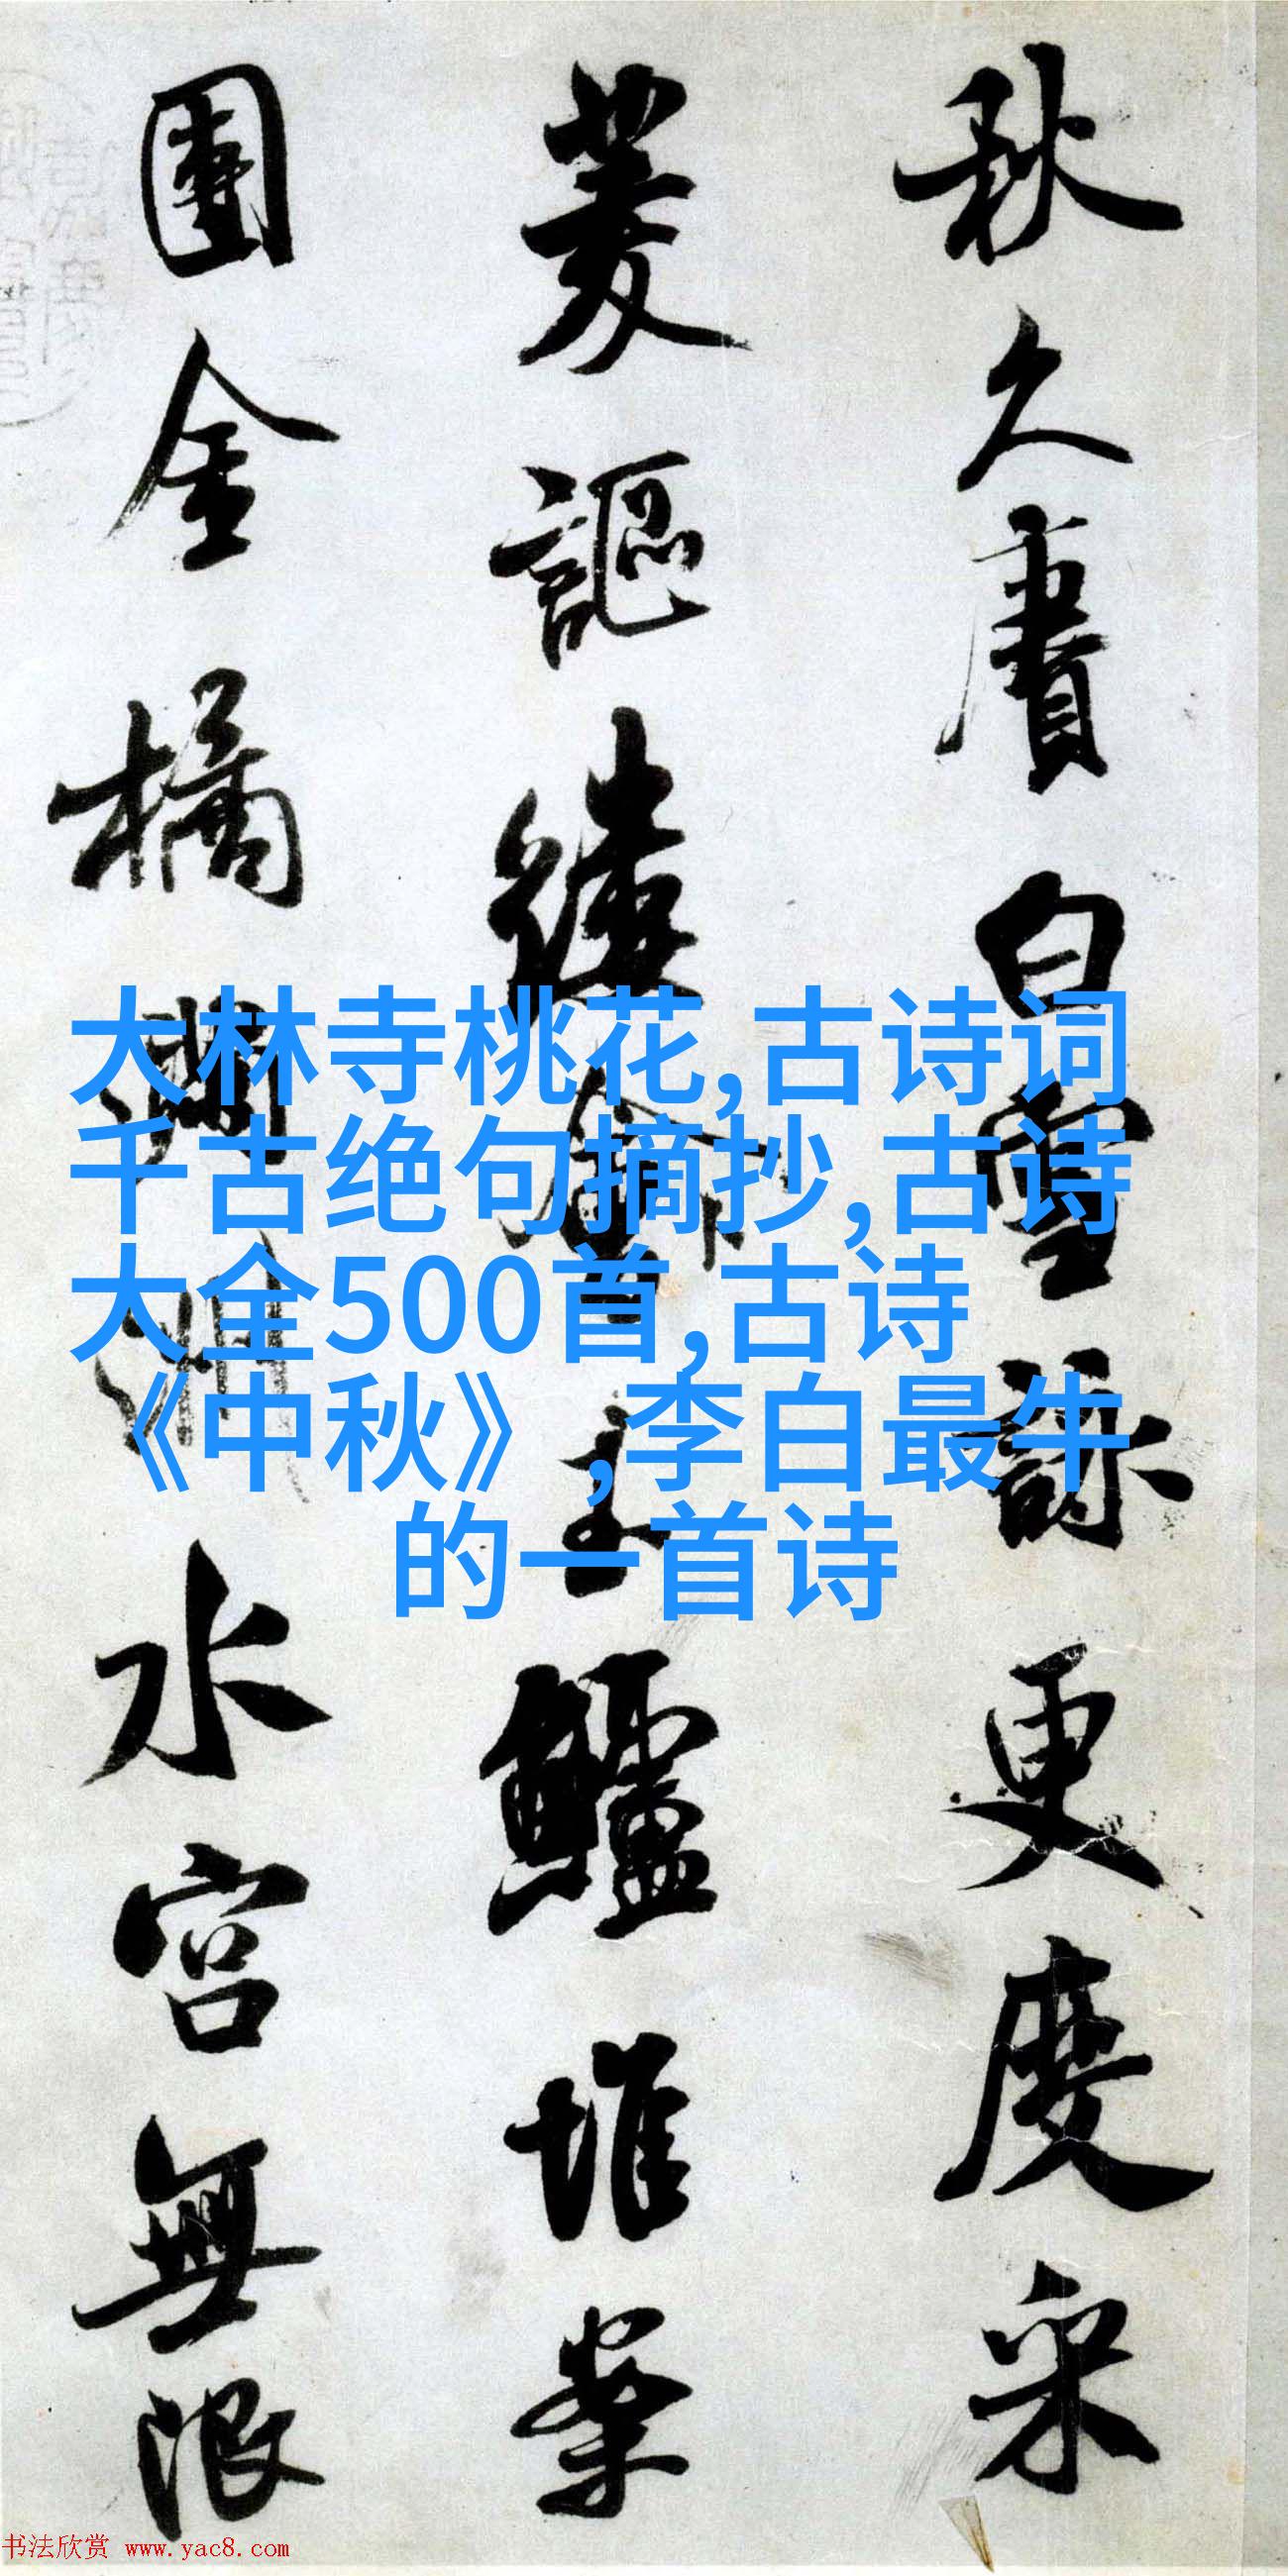 秋久賡白雪詠更度采
菱謳縷會玉鱸堆案
團金橘滿洲水宮無限
大林寺桃花,古诗词
千古绝句摘抄,古诗
大全500首,古诗
《中秋》,李白最牛
的一首诗
书法欣赏 www.yac8.com